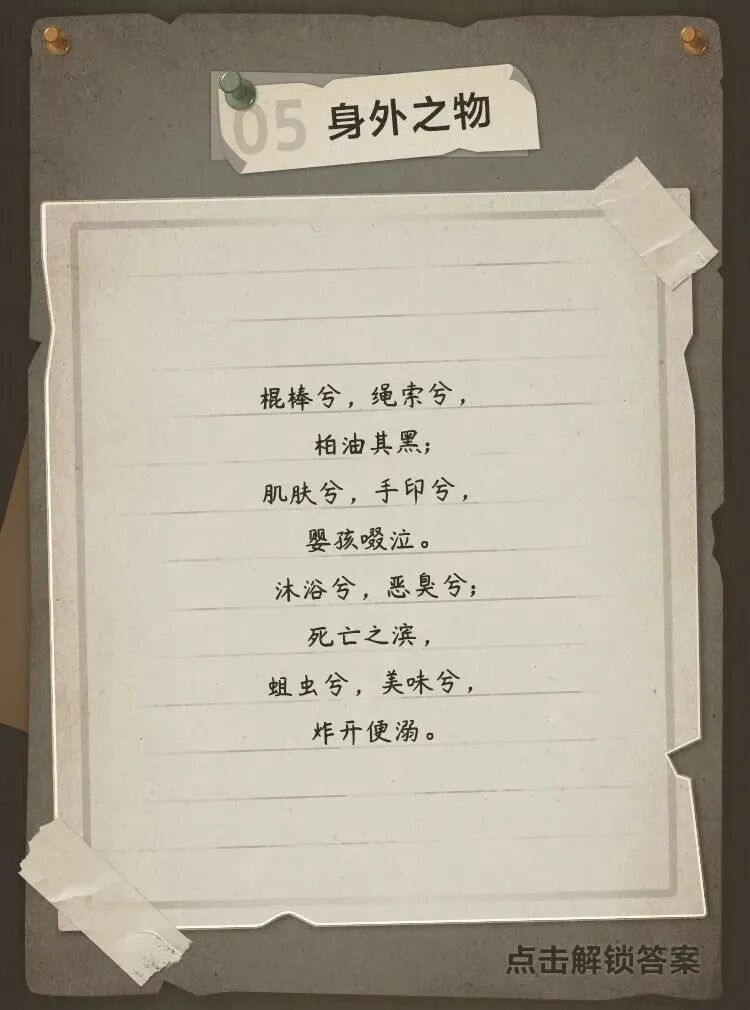 05 身外之物
棍棒兮，绳索兮，
柏油其黑；
肌肤兮，手印兮，
婴孩啜泣。
沐浴兮，恶臭兮；
死亡之滨，
蛆虫兮，美味兮，
炸开便溺。
点击解锁答案